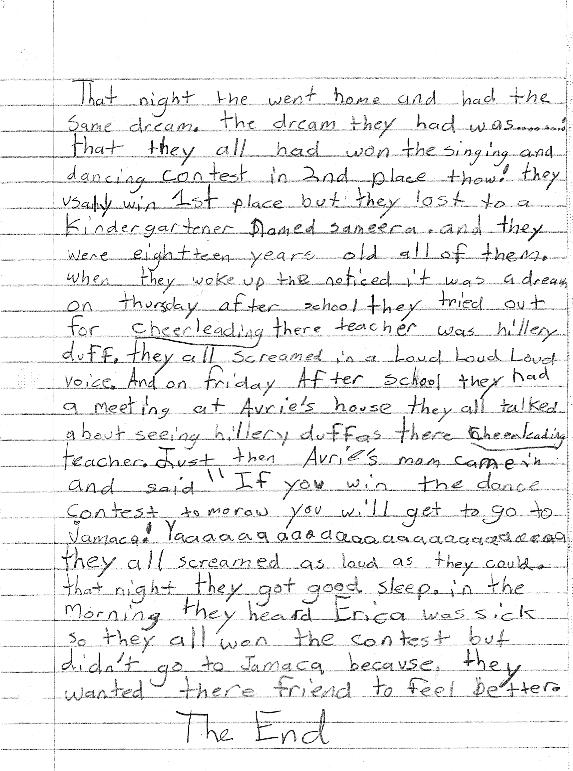 That night the went home and had the
same dream. the dream they had was........
that they all had won the singing and
dancing contest in 2nd place thow! they
usaly win 1st place but they lost to a
Kindergartener named sameera. and they
were eightteen years old all of them.
when they woke up the noticed it was a dream
on thursday after school they tried out
for cheerleading there teacher was hillery
duff. they all screamed in a Loud Loud Loud
voice. And on friday After school they had
a meeting at Avrie's house they all talked
about seeing hillery duff as there cheerleading
teacher. Just then Avrie's mom came in
and said " If you win the dance
contest tomorow you will get to go to
Jamaca! Yaaaaaaaaaaaaaaaaaaaaaaaaaaa
they all screamed as loud as they could.
that night they got good sleep. in the
Morning they heard Erica was sick
so they all won the contest but
didn't go to Jamaca becavse, they
wanted there friend to feel better.
The End